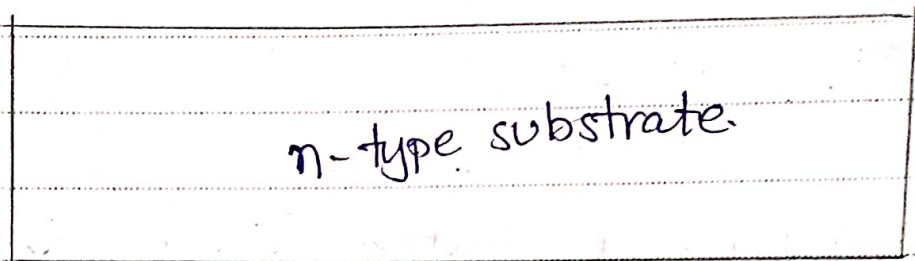 n-type substrate.